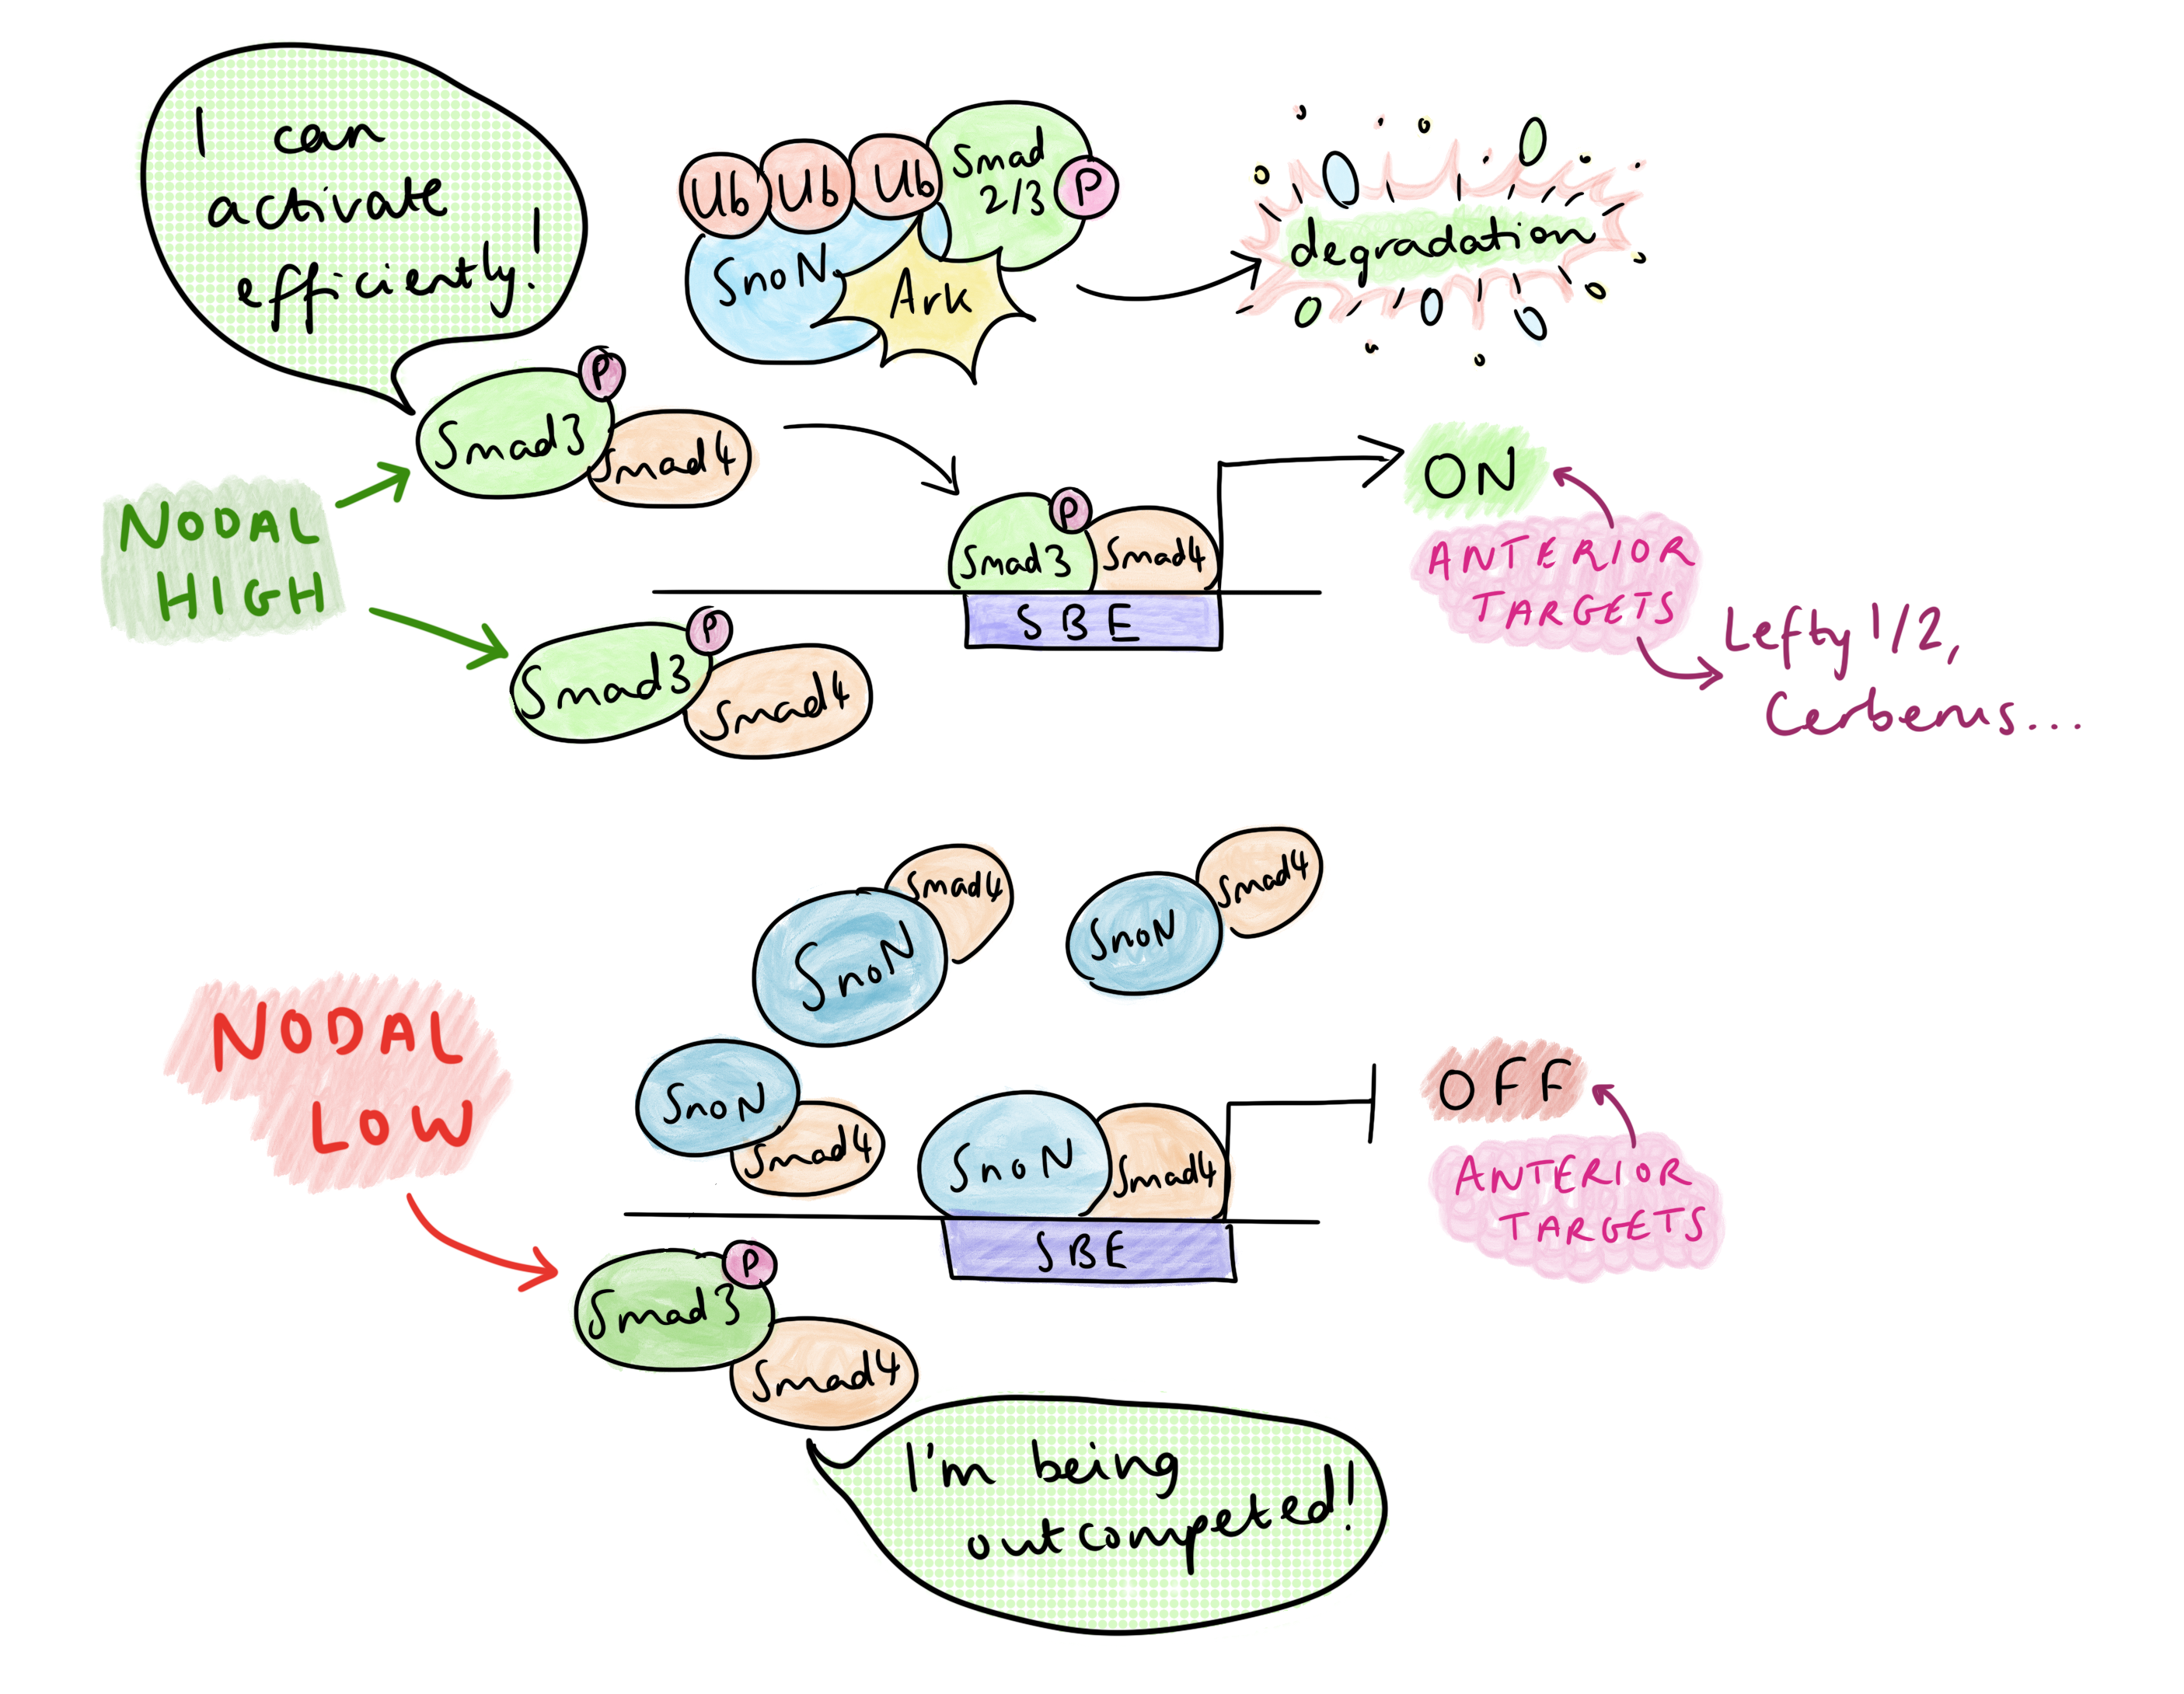 I can
activate
efficiently!
Ub Ub Ub
Smad
2/3
P
SnoN
Ark
degradation
P
Smad3
Smad4
NODAL
HIGH
P
Smad3
Smad4
SBE
ON
ANTERIOR
TARGETS
Lefty 1/2,
Cerberus...
P
Smad3
Smad4
Smad4
SnoN
Smad4
SnoN
NODAL
LOW
SnoN
Smad4
SnoN
Smad4
SBE
OFF
ANTERIOR
TARGETS
P
Smad3
Smad4
I'm being
outcompeted!